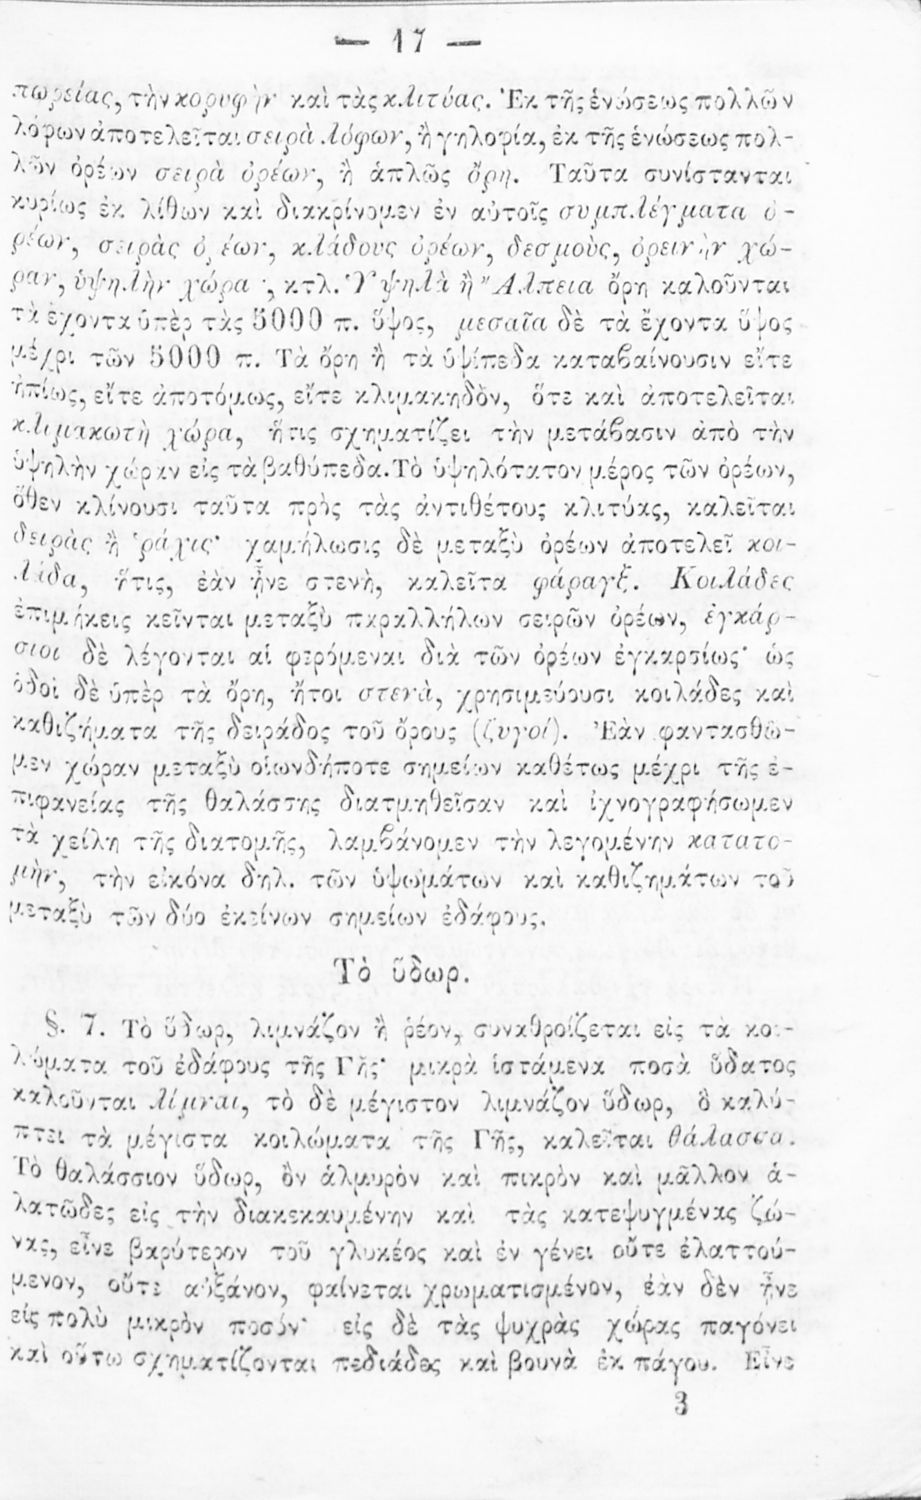 — 17 —
πωρείας, τὴν κορυφὴν καὶ τὰς κλιτύας. Ἐκ τῆς ἑνώσεως πολλῶν
λόφων ἀποτελεῖται σειρὰ λόφων, ἢ γηλοφία, ἐκ τῆς ἑνώσεως πολ-
λῶν ὀρέων σειρὰ ὀρέων, ἢ ἁπλῶς ὄρη. Ταῦτα συνίστανται
κυρίως ἐκ λίθων καὶ διακρίνομεν ἐν αὐτοῖς συμπλέγματα ὀ-
ρέων, σειρὰς ὀρέων, κλάδους ὀρέων, δεσμοὺς, ὀρεινὴν χώ-
ραν, ὑψηλὴν χώραν, κτλ. Ὑψηλὰ ἢ Ἄλπεια ὄρη καλοῦνται
τὰ ἔχοντα ὑπὲρ τὰς 5000 π. ὕψος, μεσαῖα δὲ τὰ ἔχοντα ὕψος
μέχρι τῶν 5000 π. Τὰ ὄρη ἢ τὰ ὑψίπεδα καταβαίνουσιν εἴτε
ἠπίως, εἴτε ἀποτόμως, εἴτε κλιμακηδὸν, ὅτε καὶ ἀποτελεῖται
κλιμακωτὴ χώρα, ἥτις σχηματίζει τὴν μετάβασιν ἀπὸ τὴν
ὑψηλὴν χώραν εἰς τὰ βαθύπεδα. Τὸ ὑψηλότατον μέρος τῶν ὀρέων,
ὅθεν κλίνουσι ταῦτα πρὸς τὰς ἀντιθέτους κλιτύας, καλεῖται
δειρὰς ἢ ῥάχις· χαμήλωσις δὲ μεταξὺ ὀρέων ἀποτελεῖ κοι-
λάδα, ἥτις, ἐὰν ἦνε στενὴ, καλεῖτα φάραγξ. Κοιλάδες
ἐπιμήκεις κεῖνται μεταξὺ παραλλήλων σειρῶν ὀρέων, ἐγκάρ-
σιοι δὲ λέγονται αἱ φερόμεναι διὰ τῶν ὀρέων ἐγκαρσίως· ὡς
ὁδοὶ δὲ ὑπὲρ τὰ ὄρη, ἤτοι στενὰ, χρησιμεύουσι κοιλάδες καὶ
καθιζήματα τῆς δειράδος τοῦ ὄρους (ζυγοί). Ἐὰν φαντασθῶ-
μεν χώραν μεταξὺ οἱωνδήποτε σημείων καθέτως μέχρι τῆς ἐ-
πιφανείας τῆς θαλάσσης διατμηθεῖσαν καὶ ἰχνογραφήσωμεν
τὰ χείλη τῆς διατομῆς, λαμβάνομεν τὴν λεγομένην κατατο-
μὴν, τὴν εἰκόνα δηλ. τῶν ὑψωμάτων καὶ καθιζημάτων τοῦ
μεταξὺ τῶν δύο ἐκείνων σημείων ἐδάφους.
Τὸ ὕδωρ.
§. 7. Τὸ ὕδωρ, λιμνάζον ἢ ῥέον, συναθροίζεται εἰς τὰ κοι-
λώματα τοῦ ἐδάφους τῆς Γῆς· μικρὰ ἱστάμενα ποσὰ ὕδατος
καλοῦνται λίμναι, τὸ δὲ μέγιστον λιμνάζον ὕδωρ, ὃ καλύ-
πτει τὰ μέγιστα κοιλώματα τῆς Γῆς, καλεῖται θάλασσα.
Τὸ θαλάσσιον ὕδωρ, ὂν ἁλμυρὸν καὶ πικρὸν καὶ μᾶλλον ἁ-
λατῶδες εἰς τὴν διακεκαυμένην καὶ τὰς κατεψυγμένας ζώ-
νας, εἶνε βαρύτερον τοῦ γλυκέος καὶ ἐν γένει οὔτε ἐλαττού-
μενον, οὔτε αὐξάνον, φαίνεται χρωματισμένον, ἐὰν δὲν ἦνε
εἰς πολὺ μικρὸν ποσόν· εἰς δὲ τὰς ψυχρὰς χώρας παγόνει
καὶ οὕτω σχηματίζονται πεδιάδες καὶ βουνὰ ἐκ πάγου. Εἶνε
3